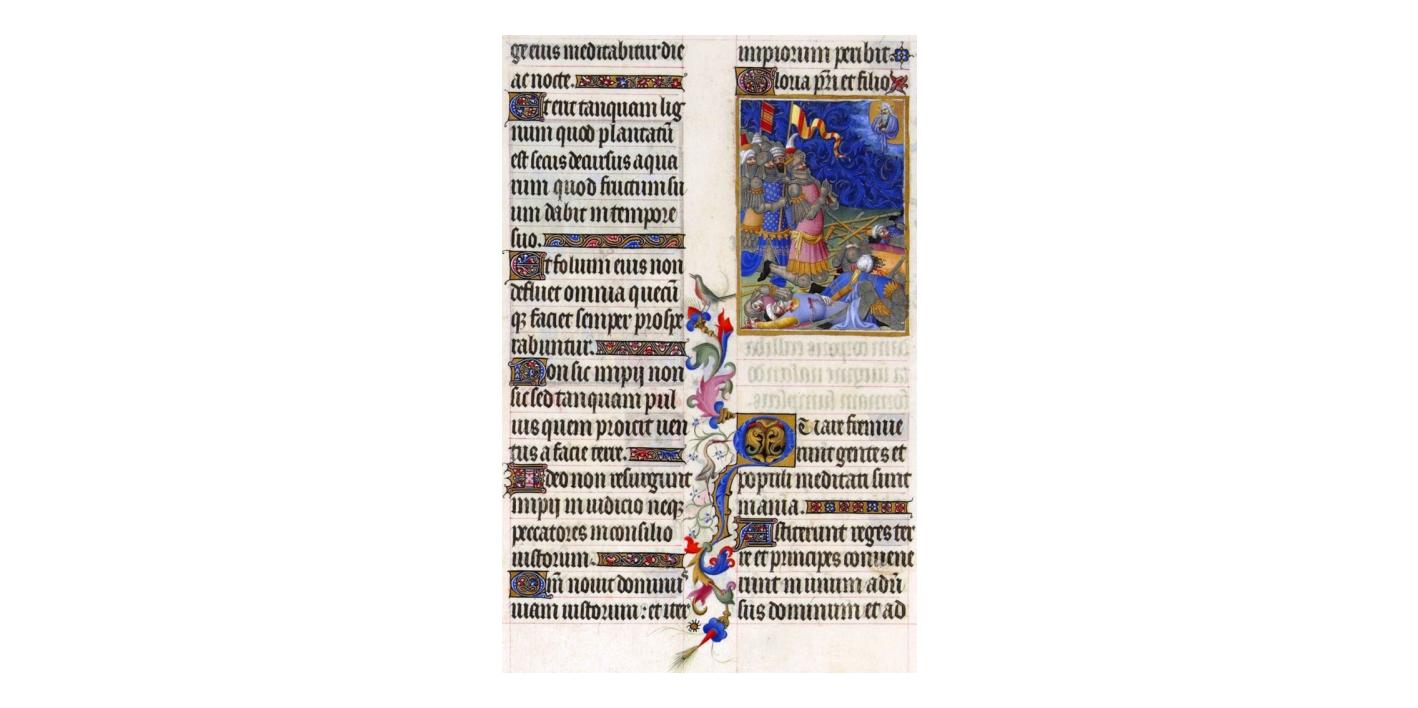 ge eius meditabitur die
ac nocte.
Et erit tanquam lig
num quod plantatū
est secus decursus aqua
rum quod fructum su
um dabit in tempore
suo.
Et folium eius non
defluet omnia quecū
qꝫ faciet semper prospe
rabuntur.
Non sic impij non
sic sed tanquam pul
uis quem proicit uen
tus a facie terre.
Ideo non resurgunt
impij in iudicio neqꝫ
peccatores in consilio
iustorum.
Qm̄ nouit dominus
uiam iustorum : et iter
impiorum peribit.
Gloria pr̄i et filio
Quare fremue
runt gentes et
populi meditati sunt
inania.
Astiterunt reges ter
re et principes conuene
runt in unum adū
sus dominum et ad